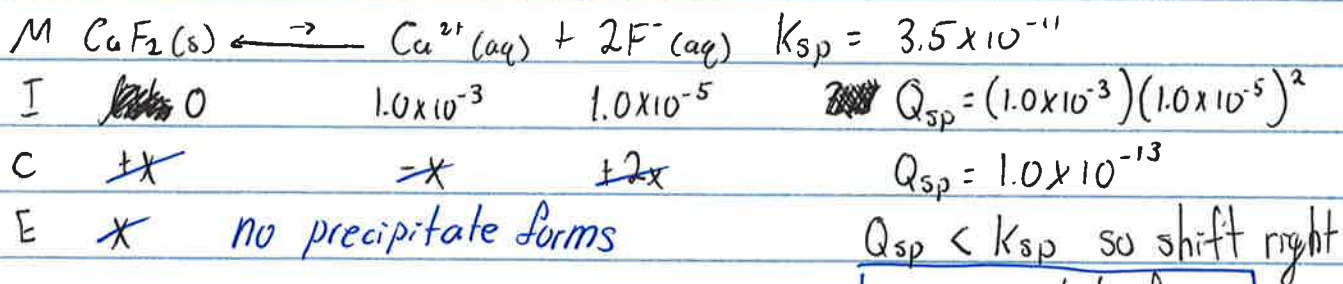 M CaF₂(s) ⟷ → Ca²⁺(aq) + 2F⁻(aq) Ksp = 3.5x10⁻¹¹
I 0 1.0x10⁻³ 1.0x10⁻⁵ Qsp = (1.0x10⁻³)(1.0x10⁻⁵)²
C +x -x +2x Qsp = 1.0x10⁻¹³
E x no precipitate forms Qsp < Ksp so shift right